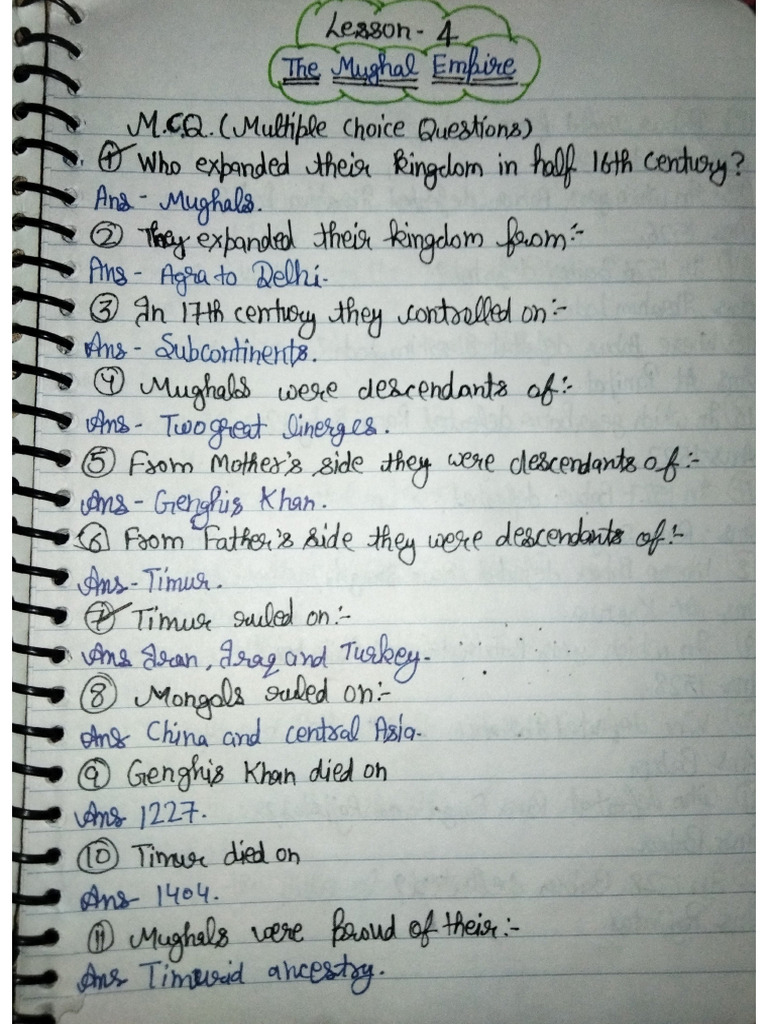 Lesson - 4
The Mughal Empire
M.C.Q. (Multiple Choice Questions)
1 Who expanded their kingdom in half 16th century?
Ans - Mughals.
2 They expanded their kingdom from:-
Ans - Agra to Delhi.
3 In 17th century they controlled on:-
Ans - Subcontinents.
4 Mughals were descendants of:-
Ans - Two great linerges.
5 From Mother's side they were descendants of:-
Ans - Genghis Khan.
6 From Father's side they were descendants of:-
Ans - Timur.
7 Timur ruled on:-
Ans Iran, Iraq and Turkey.
8 Mongols ruled on:-
Ans China and central Asia.
9 Genghis Khan died on
Ans 1227.
10 Timur died on
Ans - 1404.
11 Mughals were proud of their:-
Ans Timurid ancestry.